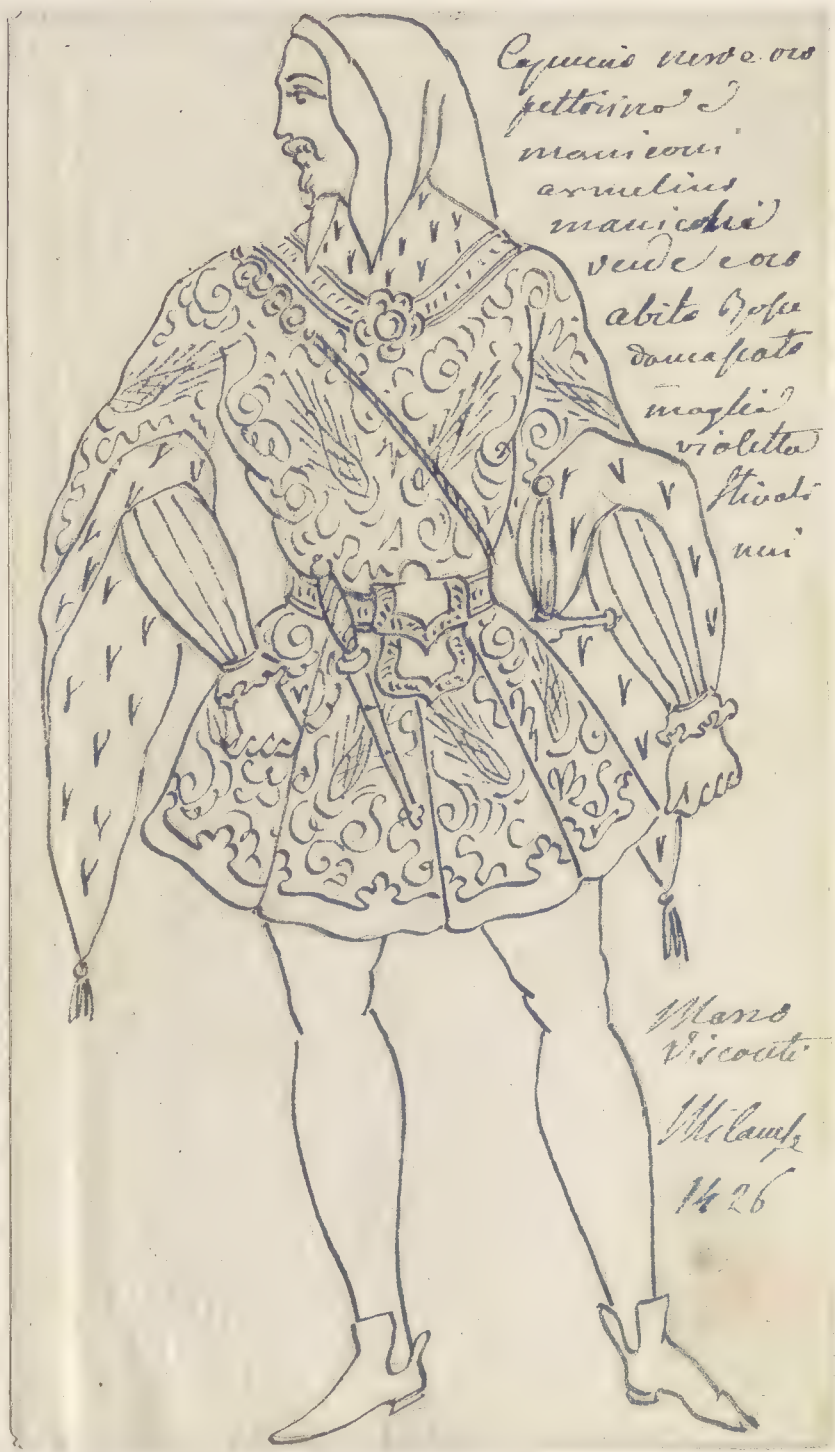 Capuccio nero e oro
pettorino e
maniconi
armelino
manichi
verde e oro
abito Rosso
damascato
maglia
violetta
stivali
neri
Marso
Visconti
Milanese
1426